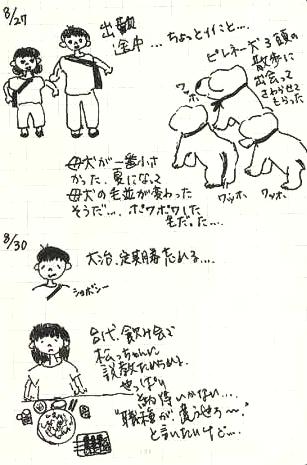 8/27
出勤
途中…ちょっとイイこと…
ピレネー犬3頭の
散歩に
出会って
さわらせて
もらった
ワホ
ワッホ
ワッホ
母犬が一番小さ
かった。夏になって
母犬の毛並が変わった
そうだ…。ポワポワした
毛だった…。
8/30
大治、定期券忘れる…。
ショボシー
飲み会で
松っちゃんに
説教たれたが
やっぱり
納得いかない…。
"職種が、違うせぅ〜"
と言いたいけど…。